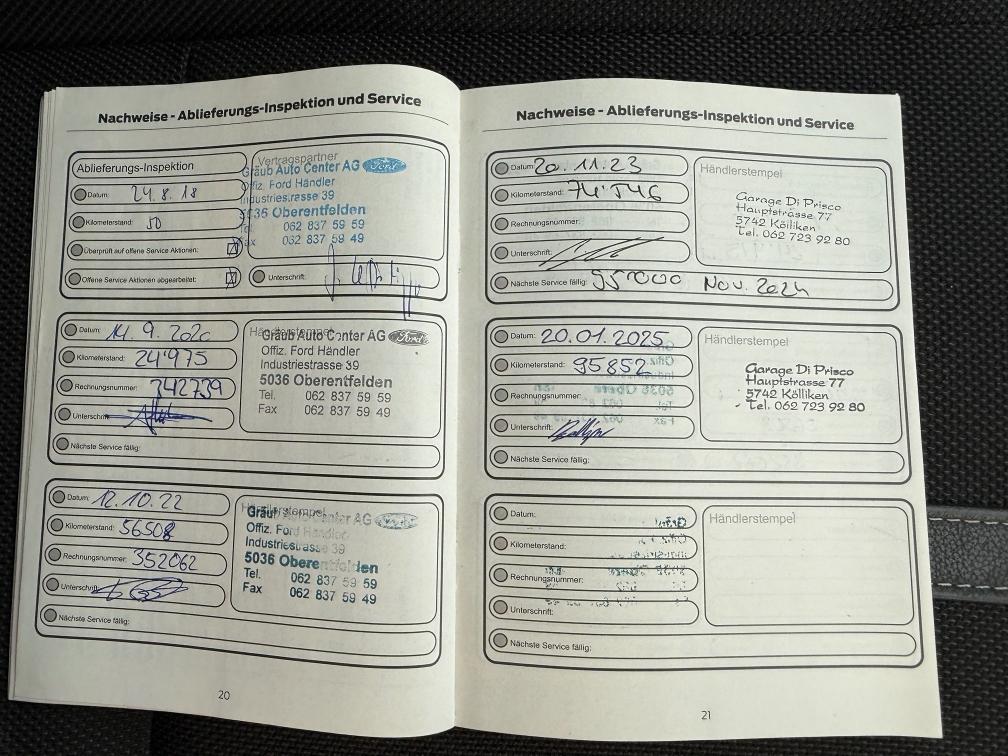 Nachweise - Ablieferungs-Inspektion und Service
Ablieferungs-Inspektion
Datum: 24.8.18
Kilometerstand: 50
Überprüft auf offene Service Aktionen:
Offene Service Aktionen abgearbeitet:
Vertragspartner
Gräub Auto Center AG Ford
Offiz. Ford Händler
Industriestrasse 39
5036 Oberentfelden
Tel. 062 837 59 59
Fax 062 837 59 49
Unterschrift:
Datum: 14.9.2020
Kilometerstand: 24'975
Rechnungsnummer: 342739
Unterschrift:
Nächste Service fällig:
Händlerstempel
Gräub Auto Center AG Ford
Offiz. Ford Händler
Industriestrasse 39
5036 Oberentfelden
Tel. 062 837 59 59
Fax 062 837 59 49
Datum: 12.10.22
Kilometerstand: 56508
Rechnungsnummer: 352062
Unterschrift:
Nächste Service fällig:
Händlerstempel
Gräub Auto Center AG
Offiz. Ford Händler
Industriestrasse 39
5036 Oberentfelden
Tel. 062 837 59 59
Fax 062 837 59 49
20
Nachweise - Ablieferungs-Inspektion und Service
Datum: 20.11.23
Kilometerstand: 74'546
Rechnungsnummer:
Unterschrift:
Nächste Service fällig: 95'000 Nov. 2024
Händlerstempel
Garage Di Prisco
Hauptstrasse 77
5742 Kölliken
Tel. 062 723 92 80
Datum: 20.01.2025
Kilometerstand: 95852
Rechnungsnummer:
Unterschrift:
Nächste Service fällig:
Händlerstempel
Garage Di Prisco
Hauptstrasse 77
5742 Kölliken
Tel. 062 723 92 80
Datum:
Kilometerstand:
Rechnungsnummer:
Unterschrift:
Nächste Service fällig:
Händlerstempel
21